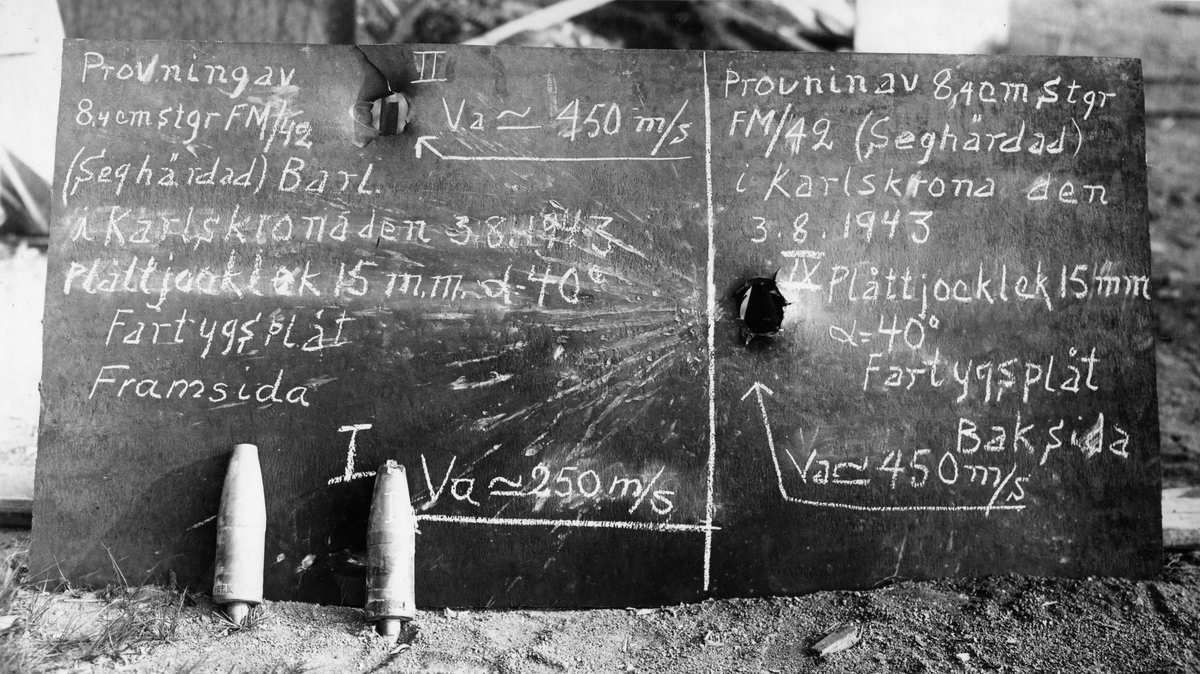 Provning av
8,4 cm stgr FM/42
(Seghärdad) Barl.
i Karlskrona den 3.8.1943
Plåttjocklek 15 m.m. α=40°
Fartygsplåt
Framsida
II
Va ≃ 450 m/s
I
Va ≃ 250 m/s
Provnin av 8,4 cm stgr
FM/42 (Seghärdad)
i Karlskrona den
3.8.1943
IV Plåttjocklek 15 mm
α=40°
Fartygsplåt
Baksida
Va ≃ 450 m/s